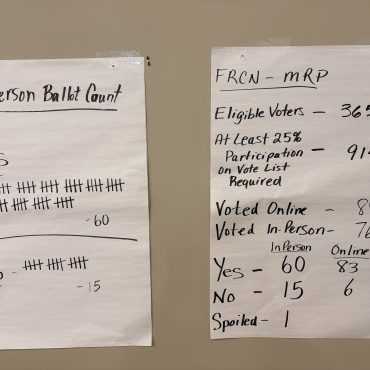 erson Ballot Count
-60
-15
FRCN - MRP
Eligible Voters - 365
At Least 25%
Participation - 914
on Vote List
Required
Voted Online - 8
Voted In-Person - 76
In Person Online
Yes - 60 83
No - 15 6
Spoiled - 1